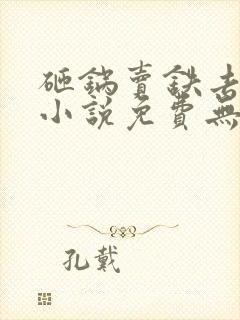 砸鍋賣鉄去
小說免費無
孔戴